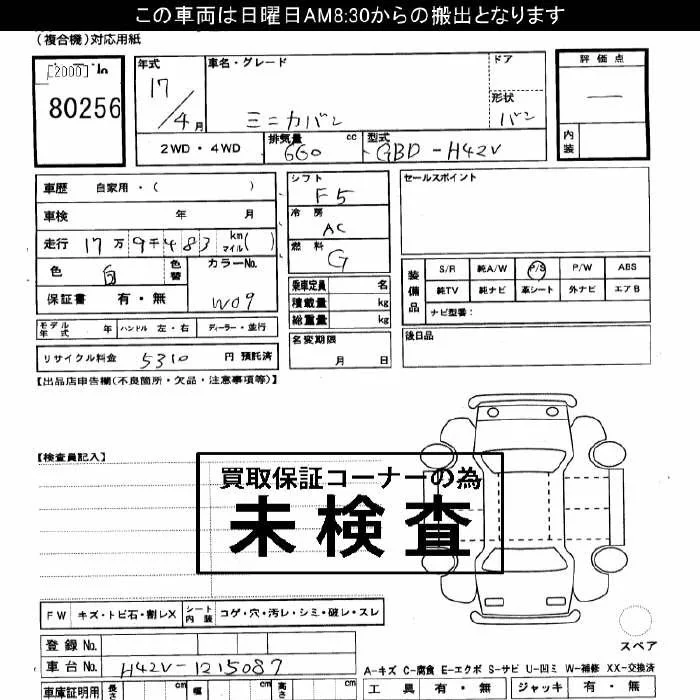 この車両は日曜日AM8:30からの搬出となります
(複合機)対応用紙
[2000]
80256
年式 17/4月
車名・グレード
ミニカバン
ドア
形状
バン
評価点
—
内装
2WD・4WD
排気量 660 cc
型式 GBD-H42V
車歴 自家用・( )
車検 年 月
走行 17万9千483 km マイル( )
色 白 色替
カラーNo. W09
保証書 有・無
モデル年式 年 ハンドル 左・右 ディーラー・並行
リサイクル料金 5310 円 預託済
シフト F5
冷房 AC
燃料 G
乗車定員 名
積載量 kg
総重量 kg
名変期限
月 日
セールスポイント
装備品
S/R 純A/W P/S P/W ABS
純TV 純ナビ 革シート 外ナビ エアB
ナビ型番:
後日品
【出品店申告欄(不良箇所・欠品・注意事項等)】
【検査員記入】
買取保証コーナーの為
未検査
FW キズ・トビ石・割レX シート内装 コゲ・穴・汚レ・シミ・破レ・スレ
登録No.
車台No. H42V-1215087
車庫証明用 長さ cm 幅 cm 高さ cm
スペア
A-キズ C-腐食 E-エクボ S-サビ U-凹ミ W-補修 XX-交換済
工具 有・無 ジャッキ 有・無